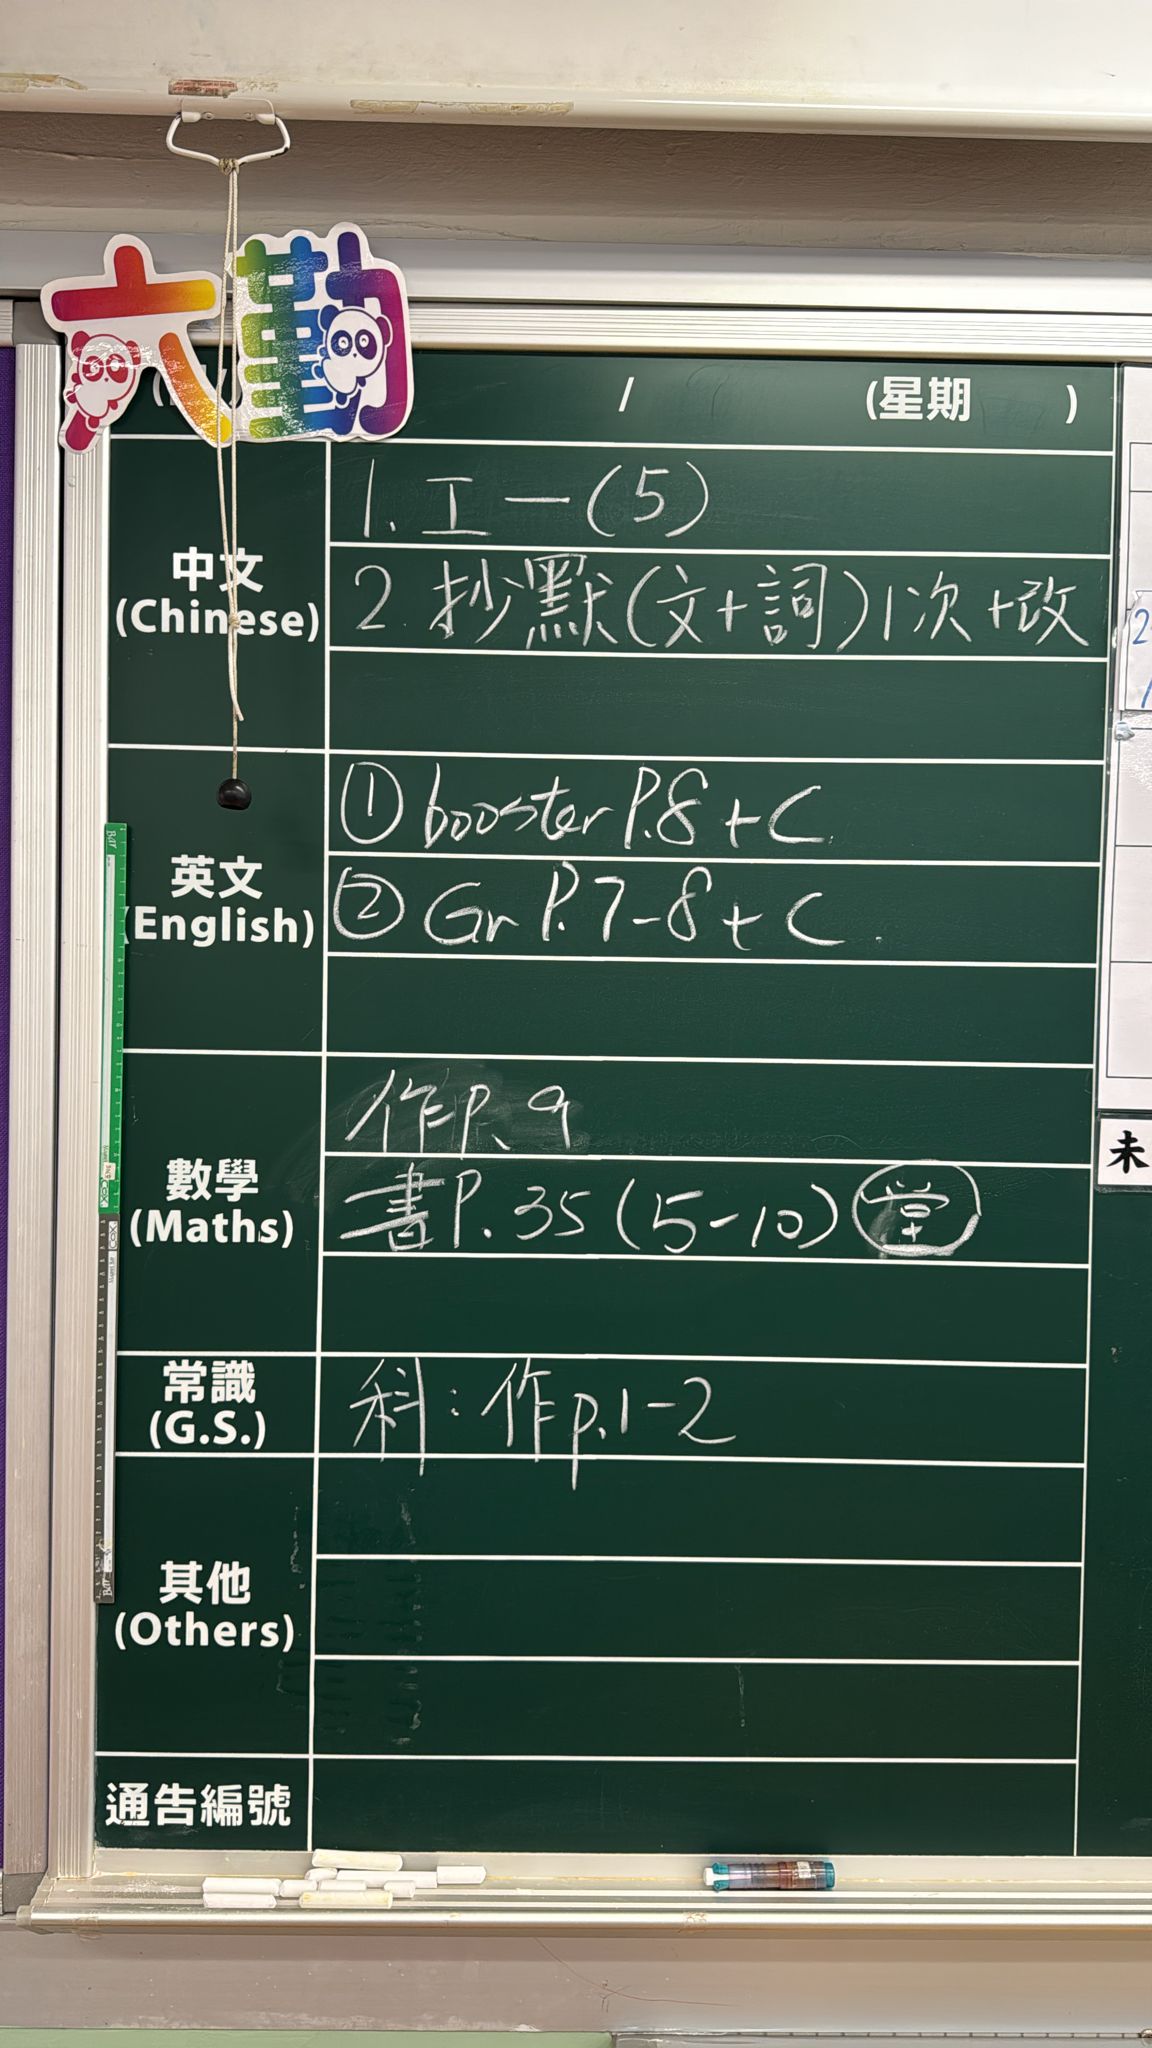 六勤
/ (星期 )
中文
(Chinese)
1. 工一(5)
2. 抄默(文+詞)1次+改
英文
(English)
① booster P.8 + C.
② Gr P.7-8 + C.
數學
(Maths)
作P. 9
書P. 35 (5-10) 堂
常識
(G.S.)
科:作p.1-2
其他
(Others)
通告編號
未
2